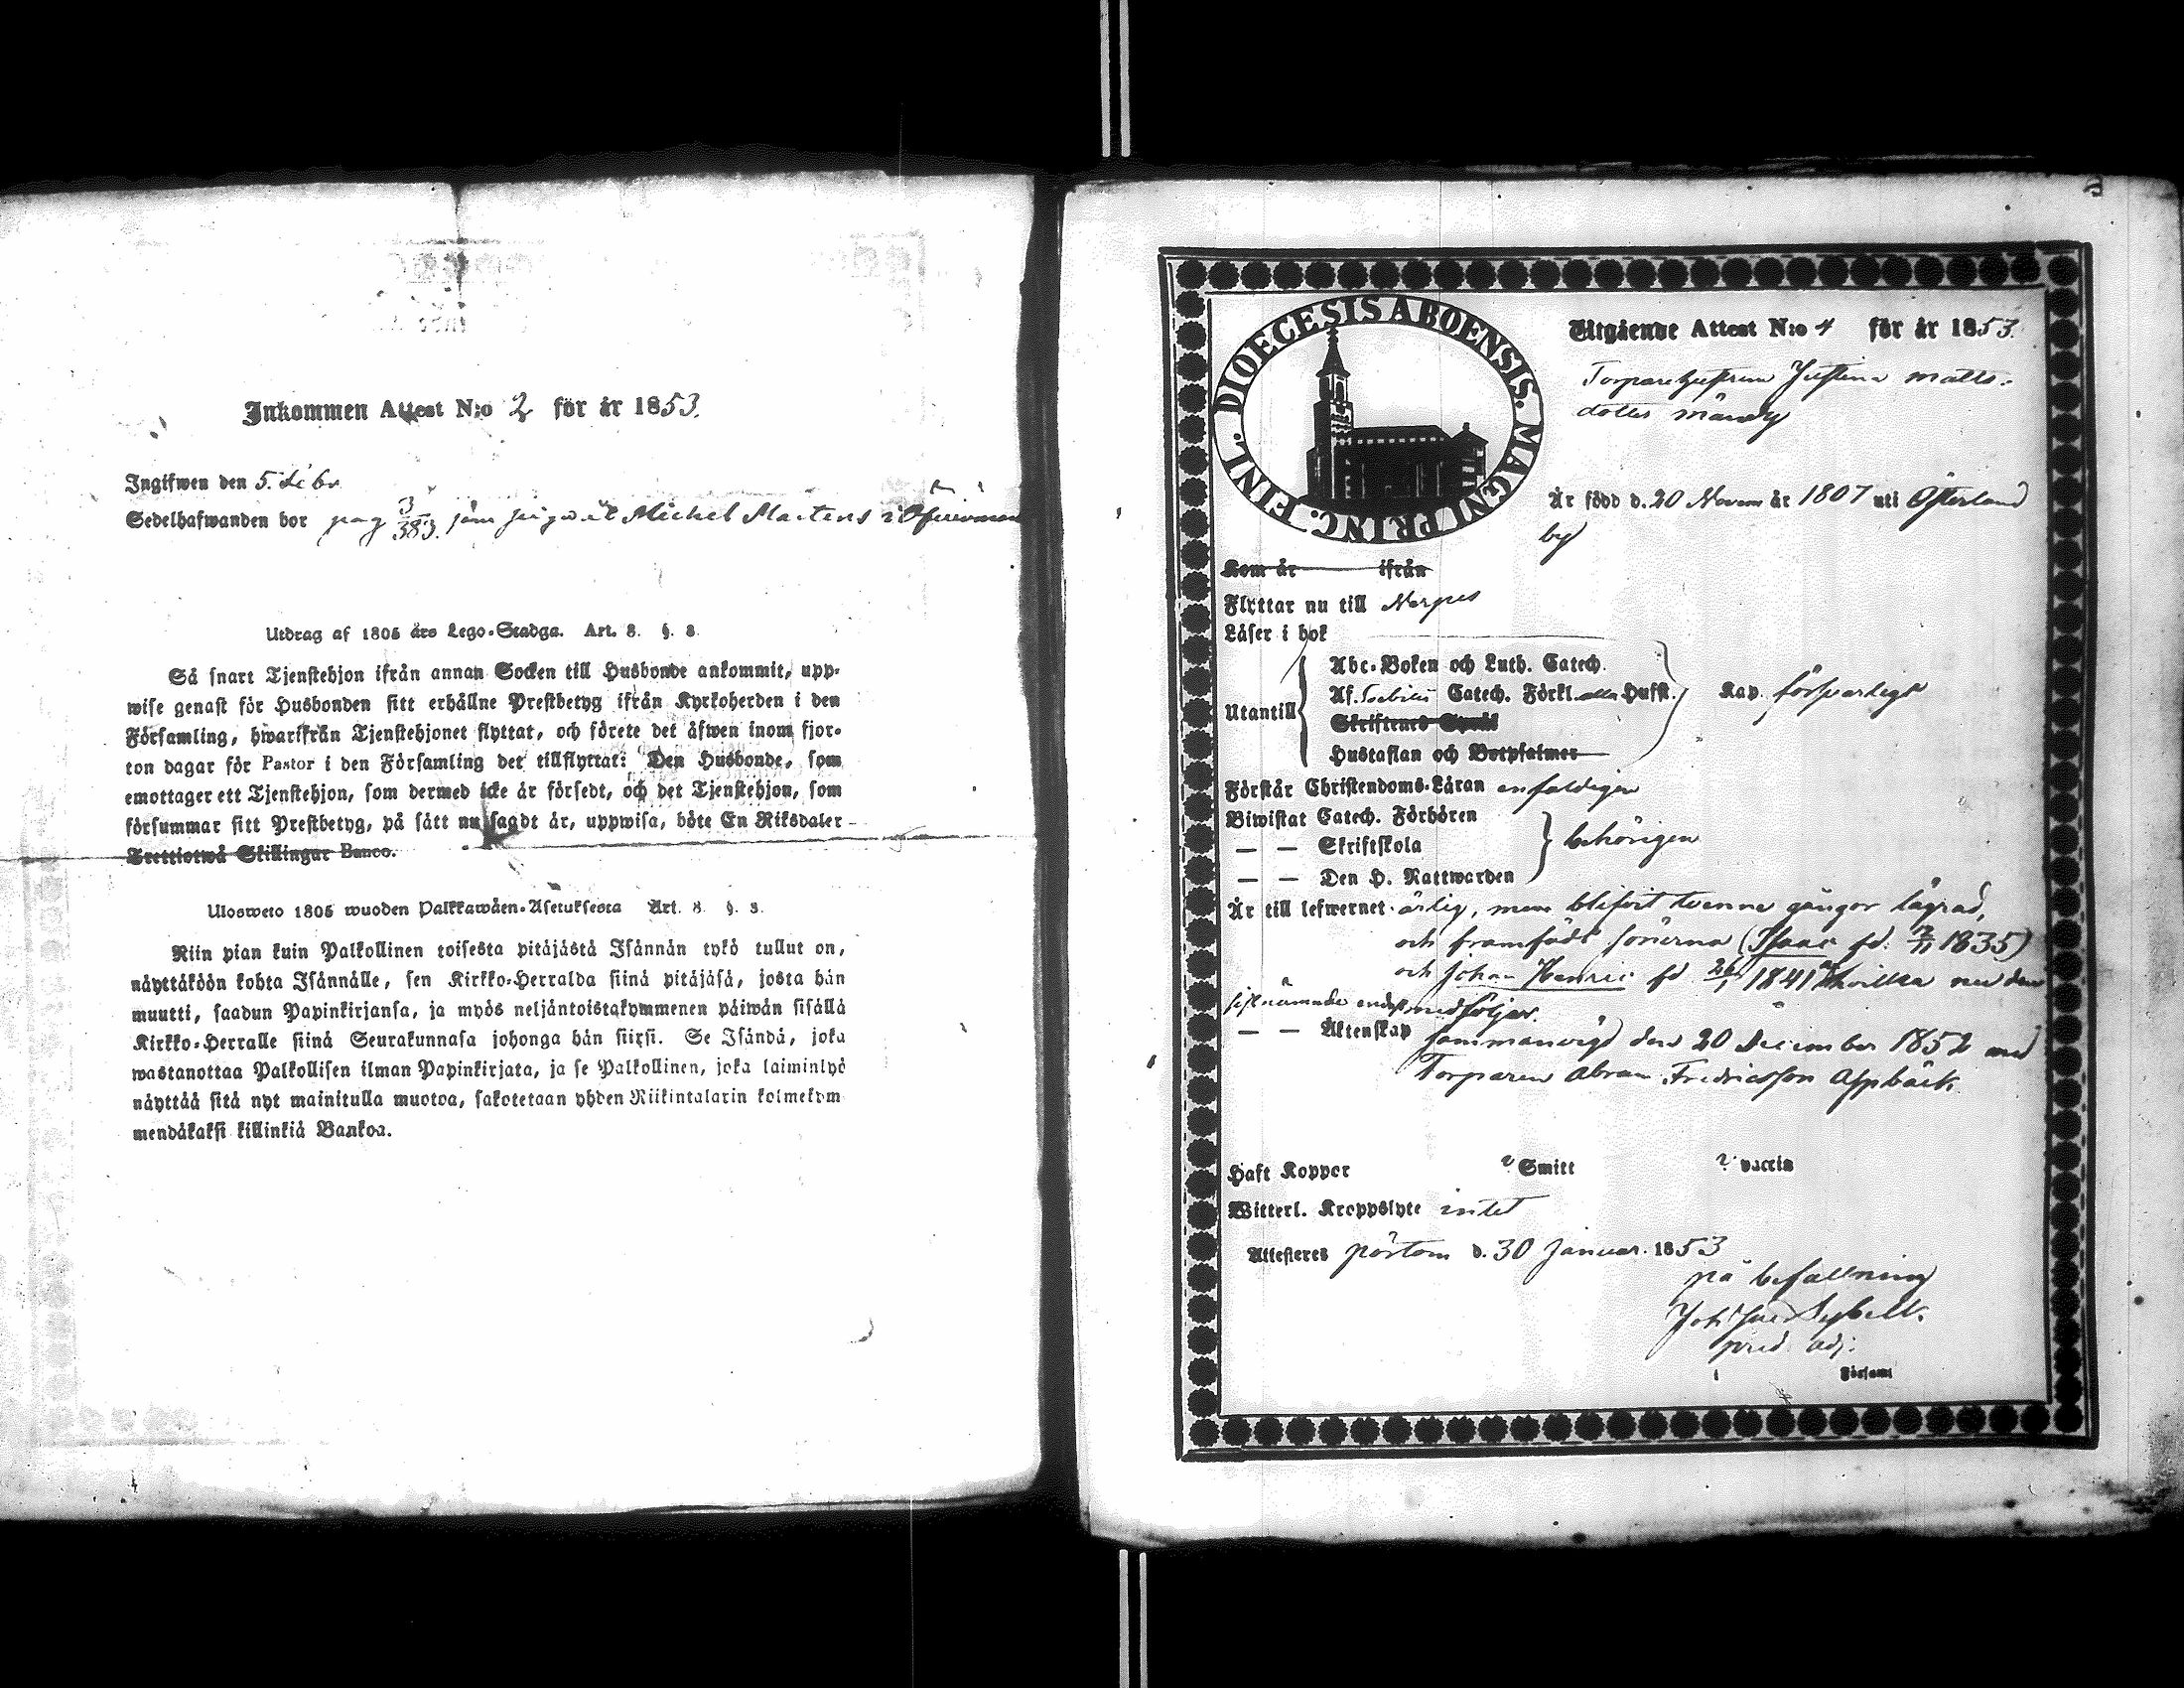 Inkommen Attest N:o 2 för år 1853.
Ingifwen den 5. Febr
Sedelhafwanden bor pag 3/383. som pigwäl Michel Mårtens i
Utdrag af 1805 års Lego-Stadga. Art. 8. §. 8.
Så snart Tjenstehjon ifrån annan Socken till Husbonde ankommit, upp-
wise genast för Husbonden sitt erhållne Prestbetyg ifrån Kyrkoherden i den
Församling, hwarifrån Tjenstehjonet flyttat, och förete det äfwen inom fjor-
ton dagar för Pastor i den Församling det tillflyttat: Den Husbonde, som
emottager ett Tjenstehjon, som dermed icke är försedt, och det Tjenstehjon, som
försummar sitt Prestbetyg, på sätt nu sagdt är, uppwisa, böte En Riksdaler
Trettiotwå Skillingar Banco.
Ulosweto 1805 wuoden Palkkawäen-Asetuksesta Art. 8. §. 3.
Niin pian kuin Palkollinen toisesta pitäjästä Isännän tykö tullut on,
näyttäköön kohta Isännälle, sen Kirkko-Herralda siinä pitäjäsä, josta hän
muutti, saadun Papinkirjansa, ja myös neljäntoistakymmenen päiwän sisällä
Kirkko-Herralle siinä Seurakunnasa johonga hän siirsi. Se Isändä, joka
wastanottaa Palkollisen ilman Papinkirjata, ja se Palkollinen, joka laiminlyö
näyttää sitä nyt mainitulla muotoa, sakotetaan yhden Riikintalarin kolmekym
mendäkaksi killinkiä Bankoa.
DIOECESIS ABOENSIS. MAGNI PRINC. FINL.
Utgående Attest N:o 4 för år 1853.
Torparehustrun Justina Matts-
dotter Mändy
Är född d. 20 Novem år 1807 uti Österland
by
Kom år ifrån
Flyttar nu till Nerpes
Läser i bok
Abc-Boken och Luth. Catech.
Utantill Af. Sebelii Catech. Förkl. eller Hufst. Kap. försvarligt
Skriftenes Språk
Hustaflan och Botpsalmer
Förstår Christendoms-Läran enfaldigen
Biwistat Catech. Förhören
— — Skriftskola behörigen
— — Den H. Nattwarden
Är till lefwernet ärlig, men blifvit tvenne gånger lägrad,
och framfödt sönerna (Isaac fd: 3/11 1835)
och Johan Henric fd 26/1 1841 hvilka nu den
sistnämnde endast medföljer.
— — Äktenskap sammanvigd den 20 December 1852 med
Torparen Abram Fredricsson Appbäck.
Haft Kopper ? Smitt ? vaccin
Witterl. Kroppslyte intet
Attesteres Pörtom d. 30 Januar. 1853
på befallning
pred. adj.
i Församl